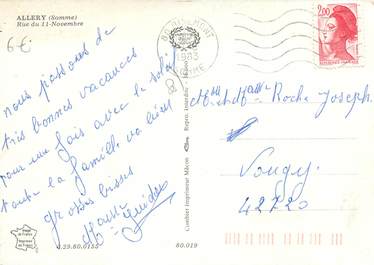 ALLERY (Somme)
Rue du 11-Novembre
6€
nous passons de
très bonnes vacances
pour une fois avec le soleil
toute la famille va bien
grosses bises
1983
SOMME
2,00
Roche Joseph
Vougy
42720
Combier Imprimeur Mâcon
Repro. Interdite
4.29.80.0155
80.019